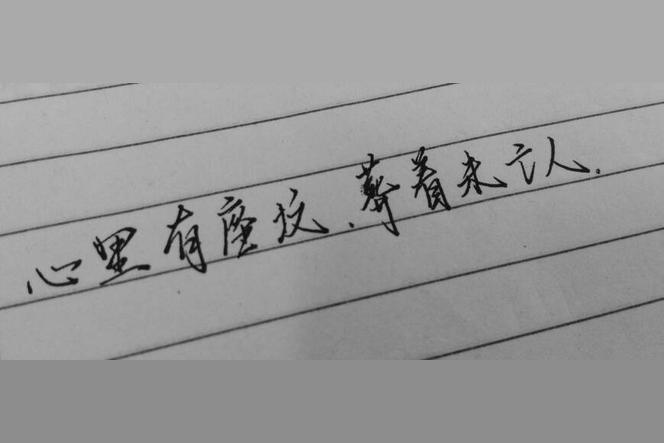 心里有座坟、葬着未亡人.